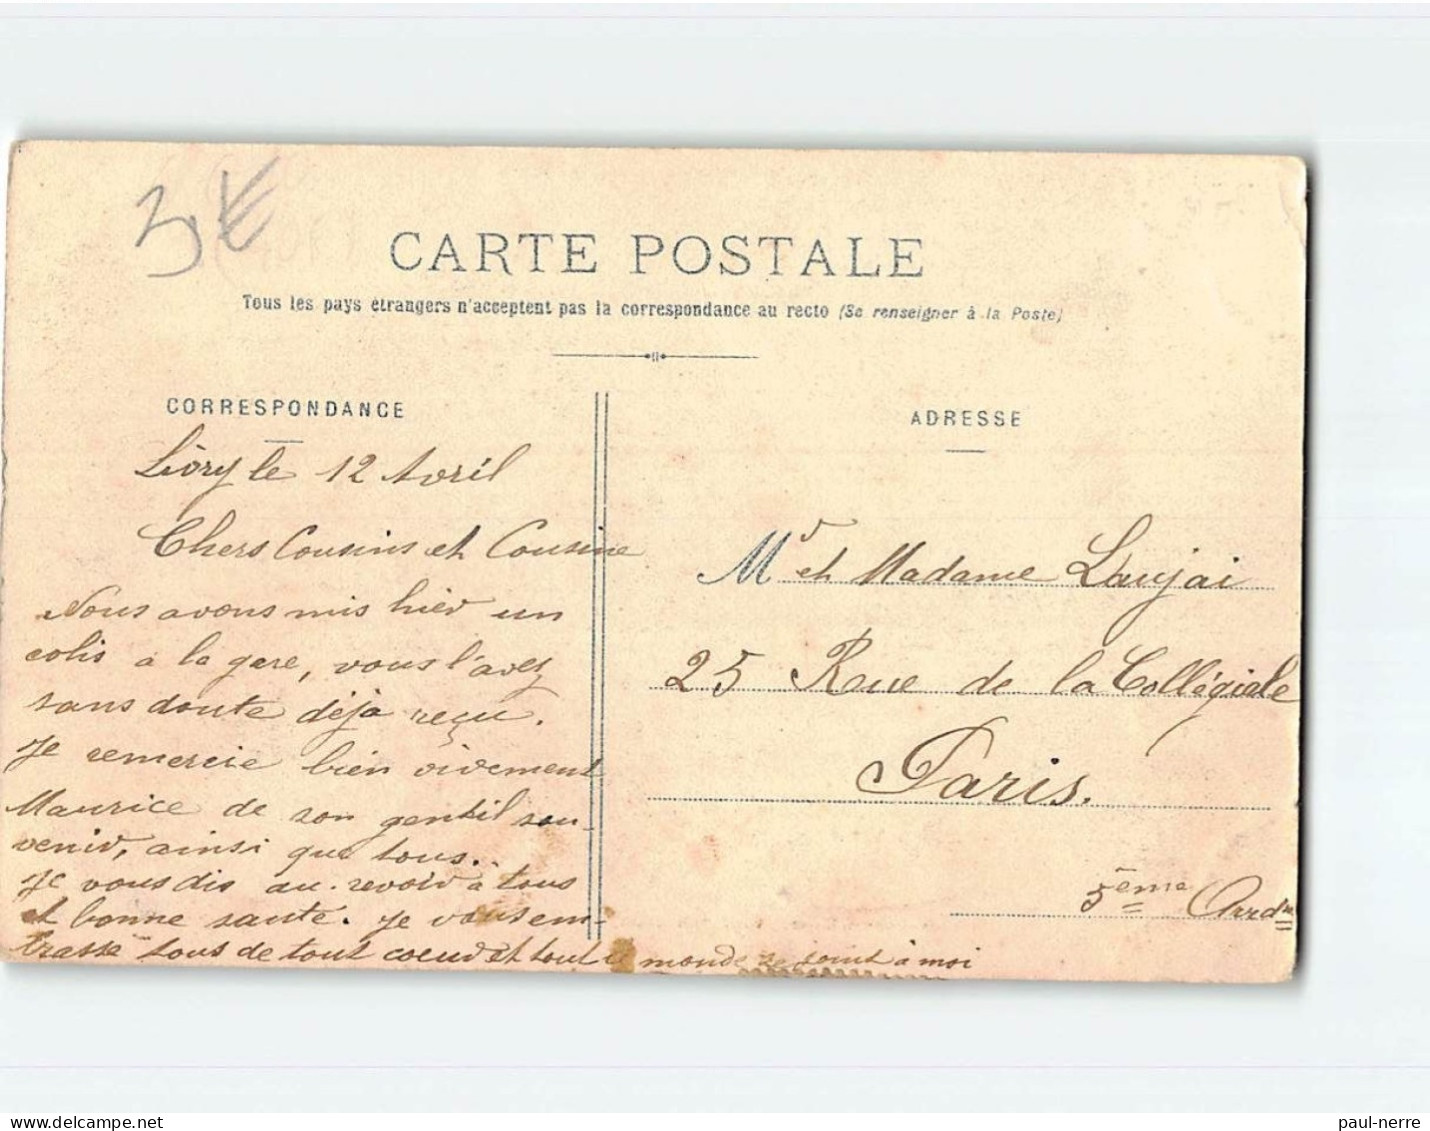 3 €
CARTE POSTALE
Tous les pays étrangers n'acceptent pas la correspondance au recto (Se renseigner à la Poste)
CORRESPONDANCE
le 12 Avril
Chers Cousins et Cousine
Nous avons mis hier un
colis a la gare, vous l'avez
sans doute déja reçu.
Je remercie bien vivement
Maurice de son gentil sou-
venir, ainsi que tous.
Je vous dis au revoir à tous
et bonne sante. Je vous em-
brasse tous de tout coeur et tout le monde se joint à moi
ADRESSE
Mr et Madame Laujai
25 Rue de la Collégiale
Paris.
5ème Arrdt
paul-nerre